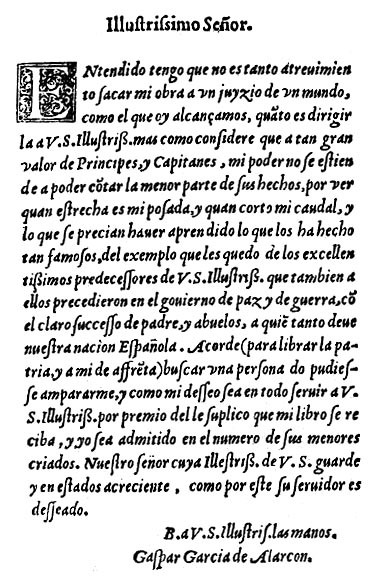 Illuſtriſsimo Señor.
ENtendido tengo que no es tanto atreuimien
to ſacar mi obra a vn juyzio de vn mundo,
como el que oy alcançamos, quãto es dirigir
la a V.S. Illuſtriß. mas como conſidere que a tan gran
valor de Principes, y Capitanes, mi poder no ſe eſtien
de a poder cõtar la menor parte de ſus hechos, por ver
quan eſtrecha es mi poſada, y quan corto mi caudal, y
lo que ſe precian hauer aprendido lo que los ha hecho
tan famoſos, del exemplo que les quedo de los excellen
tißimos predeceſſores de V.S. Illuſtriß. que tambien a
ellos precedieron en el gouierno de paz y de guerra, cõ
el claro ſucceſſo de padre, y abuelos, a quiẽ tanto deue
nueſtra nacion Eſpañola. Acorde (para librar la pa-
tria, y a mi de affrẽta) buſcar vna perſona do pudieſ-
ſe ampararme, y como mi deſſeo ſea en todo ſeruir a V.
S. Illuſtriß. por premio del le ſuplico que mi libro ſe re
ciba, y yo ſea admitido en el numero de ſus menores
criados. Nueſtro ſeñor cuya Illeſtriß. de V. S. guarde
y en eſtados acreciente, como por eſte ſu ſeruidor es
deſſeado.
B. a V. S. Illuſtriſ. las manos.
Gaſpar Garcia de Alarcon.